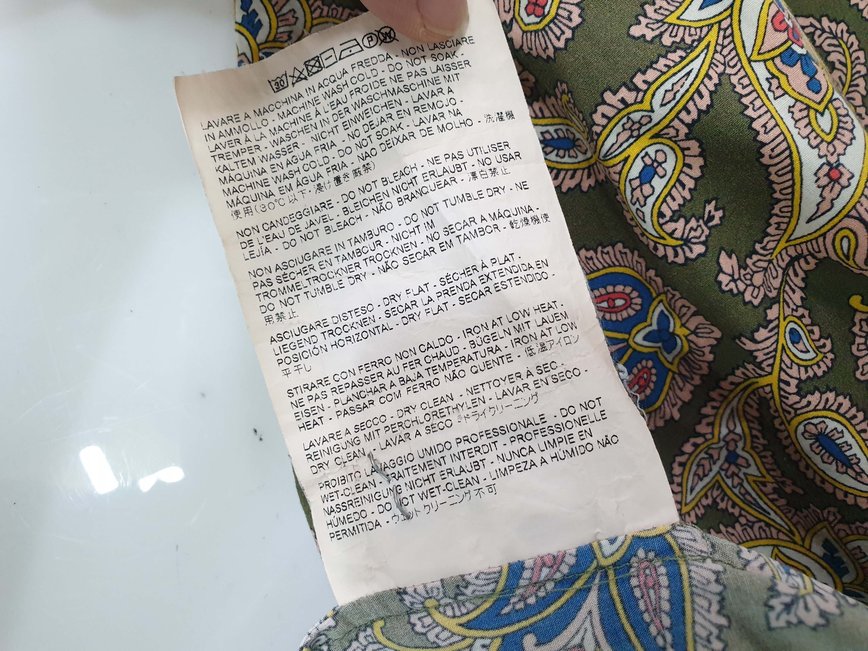 30
P
W
LAVARE A MACCHINA IN ACQUA FREDDA - NON LASCIARE
IN AMMOLLO - MACHINE WASH COLD - DO NOT SOAK -
LAVER À LA MACHINE À L'EAU FROIDE NE PAS LAISSER
TREMPER - WASCHEN IN DER WASCHMASCHINE MIT
KALTEM WASSER - NICHT EINWEICHEN - LAVAR A
MÁQUINA EN AGUA FRIA - NO DEJAR EN REMOJO -
MACHINE WASH COLD - DO NOT SOAK - LAVAR NA
MÁQUINA EM ÁGUA FRIA - NAO DEIXAR DE MOLHO - 洗濯機
使用(30℃以下・漬け置き厳禁)
NON CANDEGGIARE - DO NOT BLEACH - NE PAS UTILISER
DE L'EAU DE JAVEL - BLEICHEN NICHT ERLAUBT - NO USAR
LEJÍA - DO NOT BLEACH - NÃO BRANQUEAR - 漂白禁止
NON ASCIUGARE IN TAMBURO - DO NOT TUMBLE DRY - NE
PAS SÉCHER EN TAMBOUR - NICHT IM
TROMMELTROCKNER TROCKNEN - NO SECAR A MÁQUINA -
DO NOT TUMBLE DRY - NÃO SECAR EM TAMBOR - 乾燥機使
用禁止
ASCIUGARE DISTESO - DRY FLAT - SÉCHER À PLAT -
LIEGEND TROCKNEN - SECAR LA PRENDA EXTENDIDA EN
POSICIÓN HORIZONTAL - DRY FLAT - SECAR ESTENDIDO -
平干し
STIRARE CON FERRO NON CALDO - IRON AT LOW HEAT -
NE PAS REPASSER AU FER CHAUD - BÜGELN MIT LAUEM
EISEN - PLANCHAR A BAJA TEMPERATURA - IRON AT LOW
HEAT - PASSAR COM FERRO NÃO QUENTE - 低温アイロン
LAVARE A SECCO - DRY CLEAN - NETTOYER À SEC -
REINIGUNG MIT PERCHLORETHYLEN - LAVAR EN SECO -
DRY CLEAN - LAVAR A SECO - ドライクリーニング
PROIBITO LAVAGGIO UMIDO PROFESSIONALE - DO NOT
WET-CLEAN - TRAITEMENT INTERDIT - PROFESSIONELLE
NASSREINIGUNG NICHT ERLAUBT - NUNCA LIMPIE EN
HÚMEDO - DO NOT WET-CLEAN - LIMPEZA À HÚMIDO NÃO
PERMITIDA - ウェットクリーニング不可